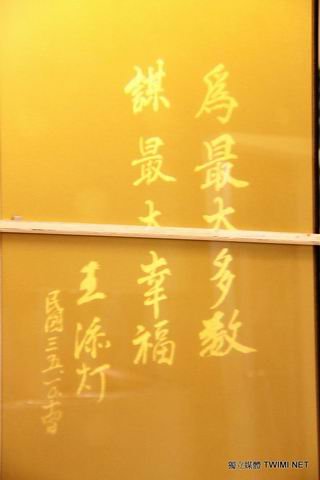 為最大多數
謀最大幸福
王添灯
民國三五、
獨立媒體 TWIMI.NET